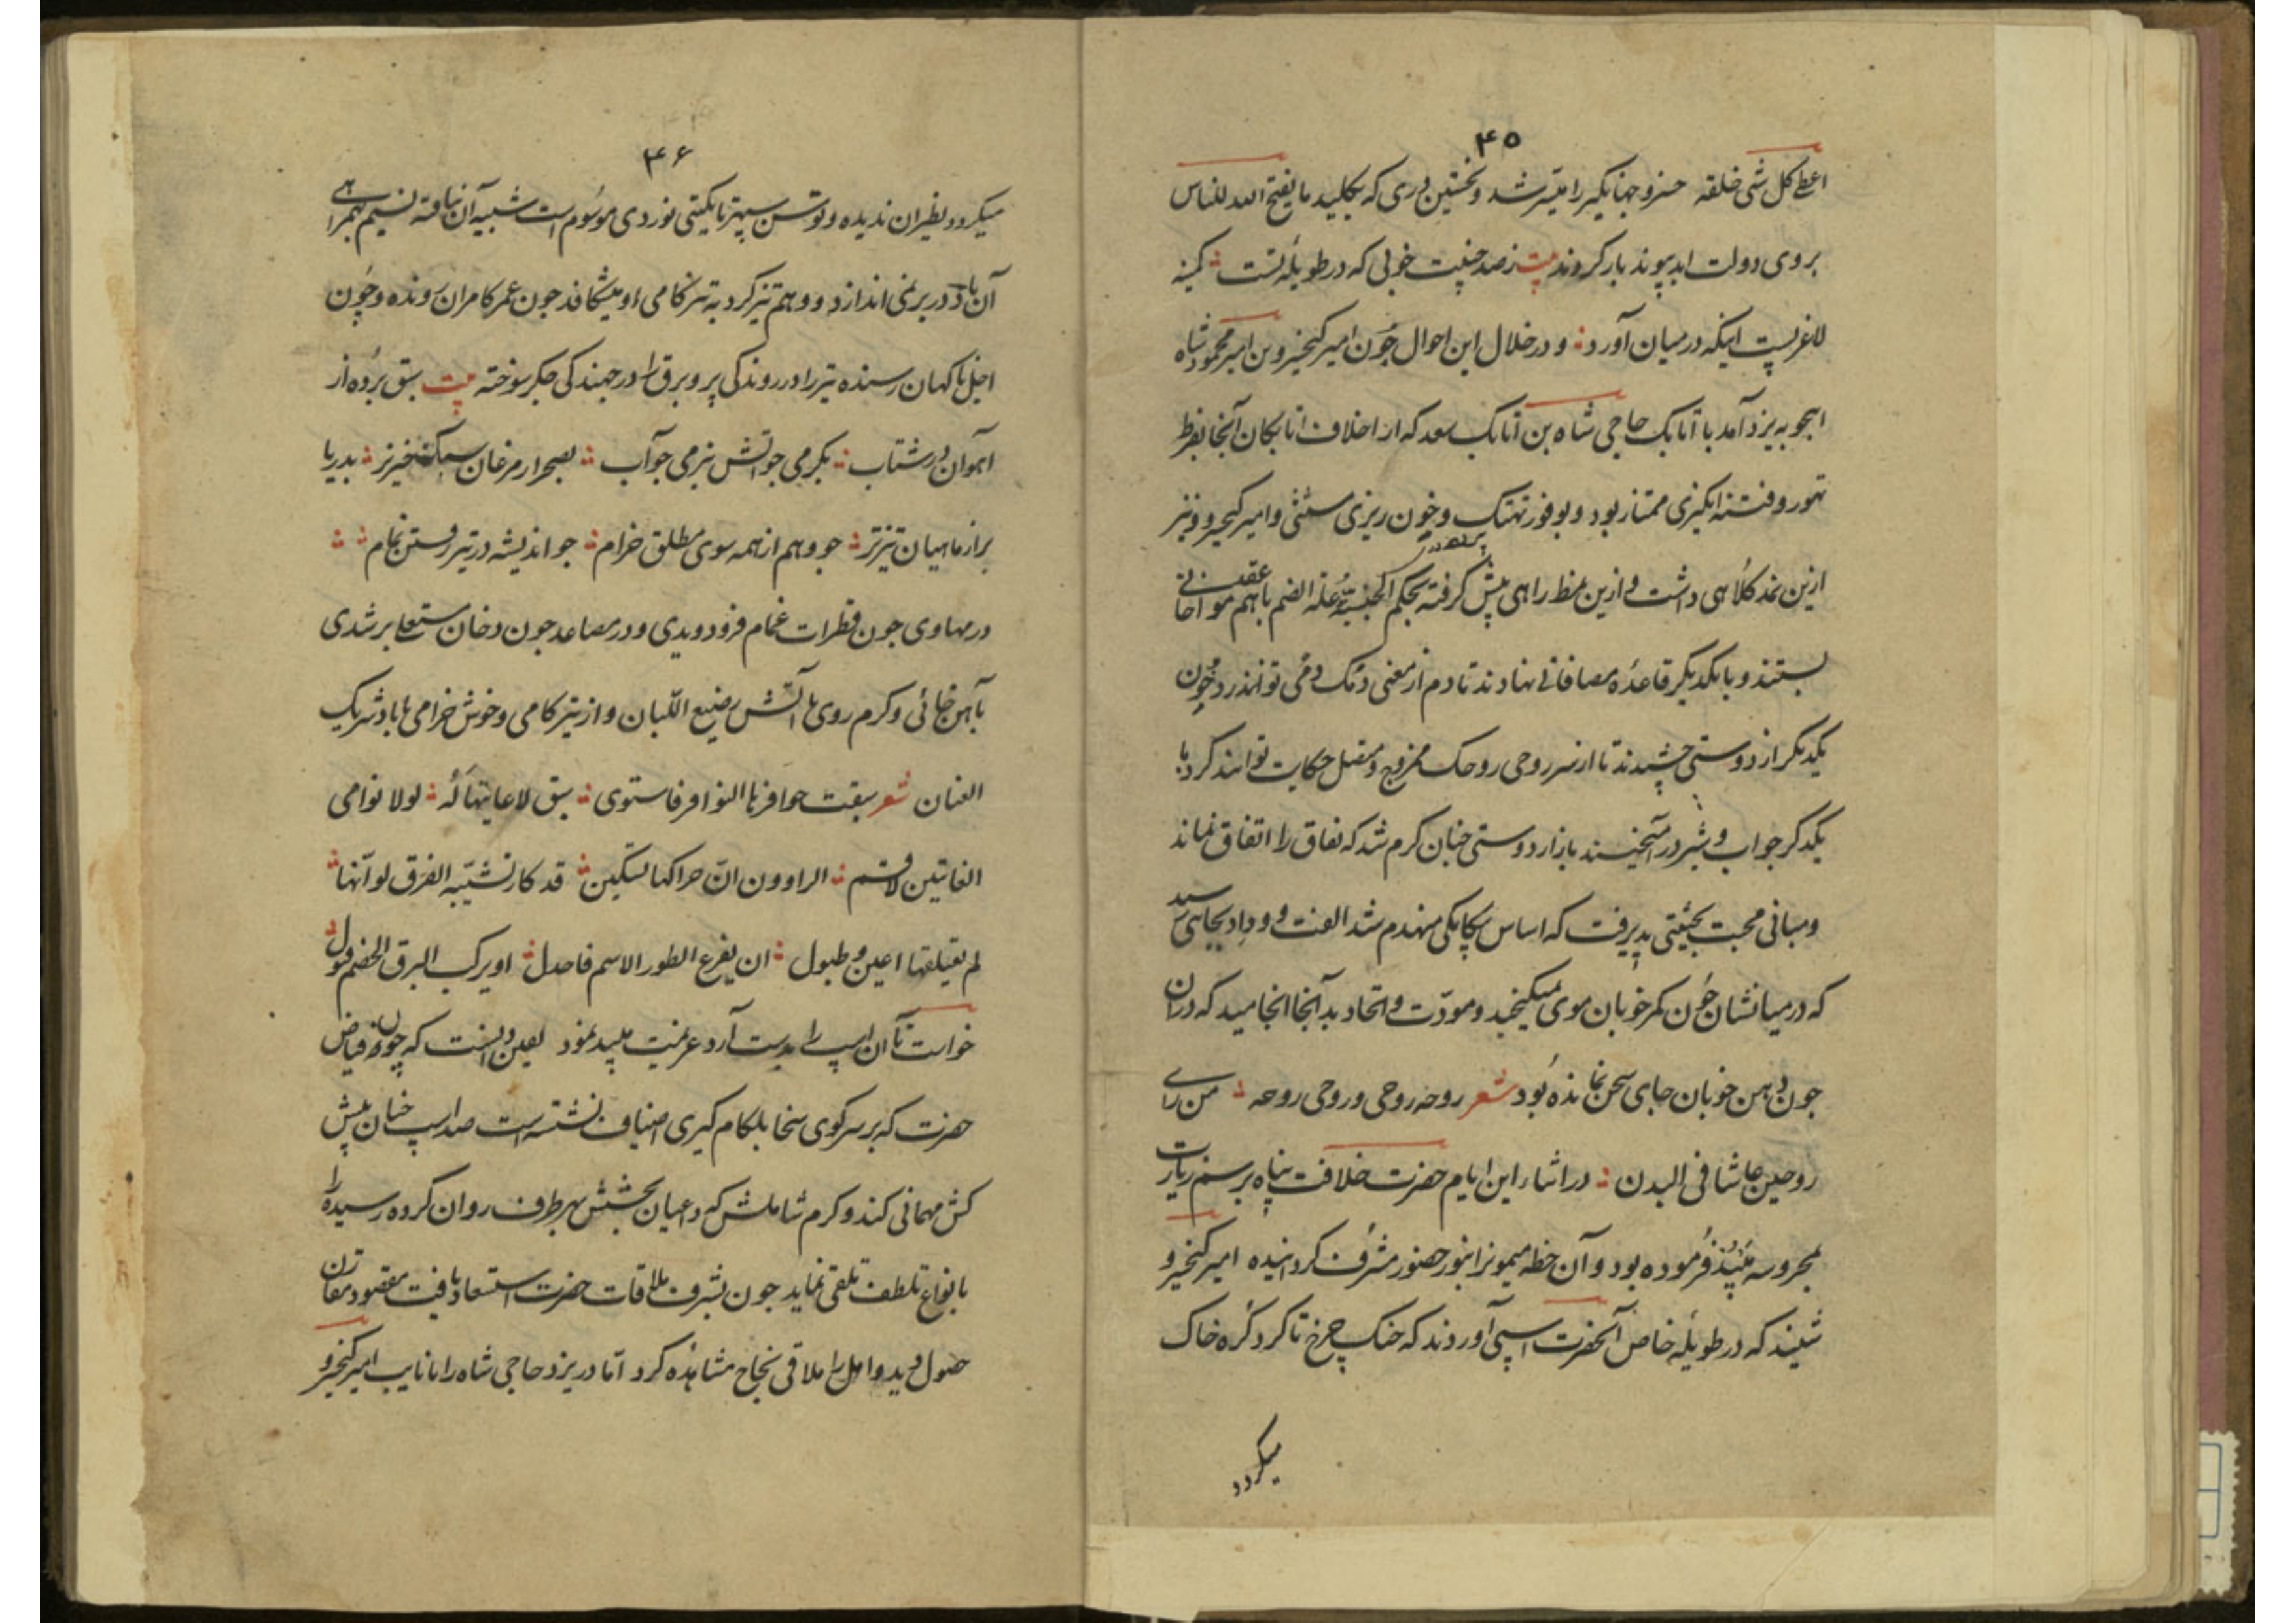 ۴۵
اعطی کل شی خلقه خسرو جهانگیر را میسر شد و نخستین دری که بکلید ما یفتح الله للناس
بروی دولت ابد پیوند باز کردند بیت ز صد جنیبت خوبی که در طویله تست کمینه
لاغریست اینکه در میان آورد و در خلال این احوال چون امیر کیخسرو بن امیر محمود شاه
اینجو به یزد آمد با اتابک حاجی شاه بن اتابک سعد که از اخلاف اتابکان آنجا بفرط
تهور و فتنه انگیزی ممتاز بود و بوفور تهتک و خون ریزی مستثنی و امیر کیخسرو نیز
ازین نمد کلاهی داشت و ازین نمط راهی پیش گرفته بحکم الجنسیة علة الضم با هم عقد مواخاتی
بستند و با یکدیگر قاعده مصافاتی نهادند تا دم از معنی دمک دمی توانند زد و چون
یکدیگر از دوستی چشیدند تا از سر روحی روحک ممزوج و متصل حکایت توانند کرد با
یکدگر چو آب و شیر در آمیختند بازار دوستی چنان گرم شد که نفاق را اتفاق نماند
و مبانی محبت بحیثیتی پذیرفت که اساس بیکانگی منهدم شد الفت و وداد بجایی رسید
که در میانشان چون کمر خوبان موی نمیگنجید و مودت و اتحاد بدآنجا انجامید که در آن
چون دهن خوبان جای سخن نمانده بود شعر روحه روحی و روحی روحه من رای
روحین عاشا فی البدن در اثناء این ایام حضرت خلافت پناه برسم زیارت
بمحروسه میبد فرموده بود و آن خطه میمونرا بنور حضور مشرف گردانیده امیر کیخسرو
شنید که در طویله خاص آنحضرت اسپی آوردند که خنک چرخ تا گرد کره خاک
میکردد
۴۶
میکردد نظیر آن ندیده و توسن سپهر تا بگیتی نوردی موسوم است شبیه آن نیافته نسیم همراهی
آن باد در بر نمی اندازد و وهم تیزگرد به تیزگامی او میشکافد چون عمر کامران رونده و چون
اجل ناکهان رسنده تیر را در روندکی پر و برق را در جهندکی جگر سوخته بیت سبق برده از
آهوان در شتاب بکرمی چو آتش بنرمی چو آب بصحرا ز مرغان سبک خیزتر بدریا
بر از ماهیان تیزتر چو وهم از همه سوی مطلق خرام چو اندیشه در تیز رفتن تمام
در مهاوی چون قطرات غمام فرو دویدی و در مصاعد چون دخان مستعلی بر شدی
بآهن خائی و گرم روی با آتش رضیع اللبان و از تیز کامی و خوش خرامی با باد شریک
العنان شعر سبقت حوافرها النواظر فاستوی سبق لاعایتها له لولا توامی
الغایتین لاقسم الراوون ان حراکها تسکین قد کاد تشبیه الفرق لو انها
لم تعتلقها اعین و طبول ان یفرع الطور الاسم فاجدل او یرکب البرق الخضم فتول
خواست تا آن اسپ را بدست آرد عزیمت میبد نمود یقین دانست که چون فیاض
حضرت که بر سر کوی سخا بلکام کیری اضیاف نشسته است صد اسپ چنان پیش
کش مهمانی کند و کرم شاملش که داعیان بخشش بهر طرف روان کرده رسیده را
بانواع تلطف تلقی نماید چون بشرف ملاقات حضرت استسعاد یافت مقصود مقارن
حصول دید و امل را ملاقی نجاح مشاهده کرد اما در یزد حاجی شاه را با نایب امیر کیخسرو